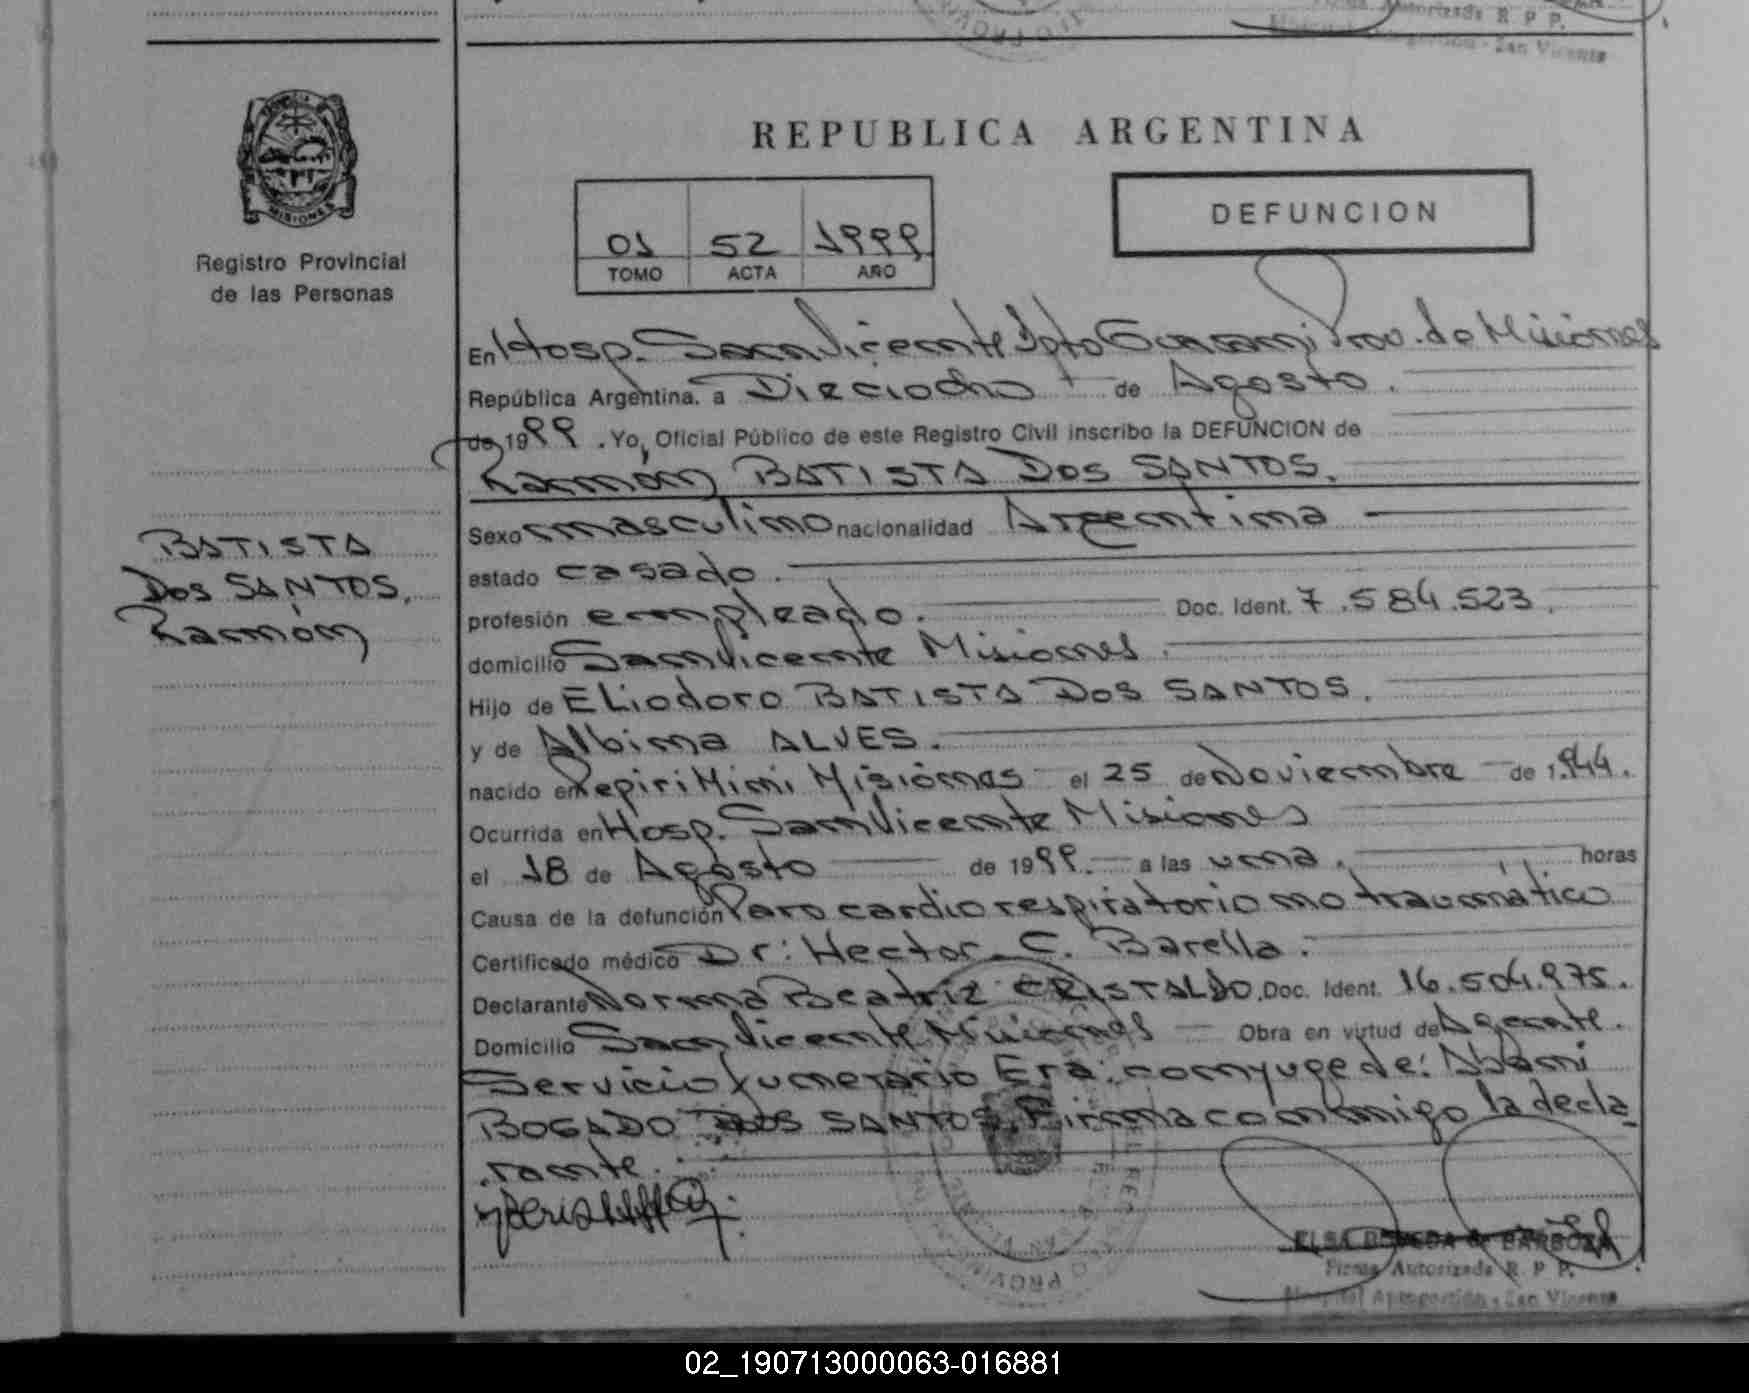 Autorizada R. P. P.
San Vicente
PROVINCIA DE
MISIONES
Registro Provincial
de las Personas
REPUBLICA ARGENTINA
DEFUNCION
01 52 1999
TOMO ACTA AÑO
En Hosp. San Vicente Dpto Guarani Prov. de Misiones
República Argentina, a Dieciocho de Agosto.
de 1999. Yo, Oficial Público de este Registro Civil inscribo la DEFUNCION de
Ramón BATISTA DOS SANTOS.
BATISTA
DOS SANTOS,
Ramón
Sexo masculino nacionalidad Argentina
estado casado.
profesión empleado. Doc. Ident. 7.584.523.
domicilio San Vicente Misiones.
Hijo de ELiodoro BATISTA DOS SANTOS.
y de Albina ALVES.
nacido en Pepiri Mini Misiones el 25 de Noviembre de 1.944.
Ocurrida en Hosp. San Vicente Misiones
el 18 de Agosto de 1999. a las una. horas
Causa de la defunción Paro cardio respiratorio no traumático
Certificado médico Dr: Hector C. Barella.
Declarante Norma Beatriz CRISTALDO. Doc. Ident. 16.504.975.
Domicilio San Vicente Misiones Obra en virtud de Agente.
Servicio funerario Era: conyuge de: Abani
BOGADO DOS SANTOS. Firma conmigo la decla
rante.
ELSA BARBOZA
Firma Autorizada R. P. P.
Hospital Autogestión - San Vicente
02_190713000063-016881